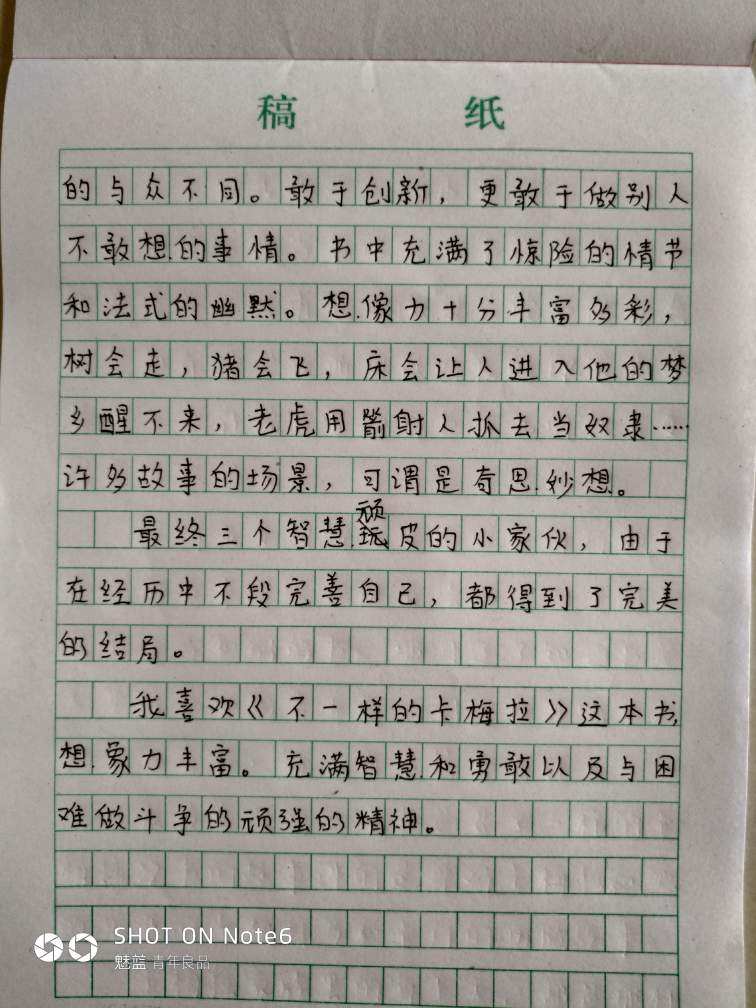 稿 纸
的与众不同。敢于创新，更敢于做别人
不敢想的事情。书中充满了惊险的情节
和法式的幽默。想像力十分丰富多彩，
树会走，猪会飞，床会让人进入他的梦
乡醒不来，老虎用箭射人抓去当奴隶……
许多故事的场景，可谓是奇思妙想。
最终三个智慧顽皮的小家伙，由于
在经历中不段完善自己，都得到了完美
的结局。
我喜欢《不一样的卡梅拉》这本书，
想象力丰富。充满智慧和勇敢以及与困
难做斗争的顽强的精神。
SHOT ON Note6
魅蓝 青年良品